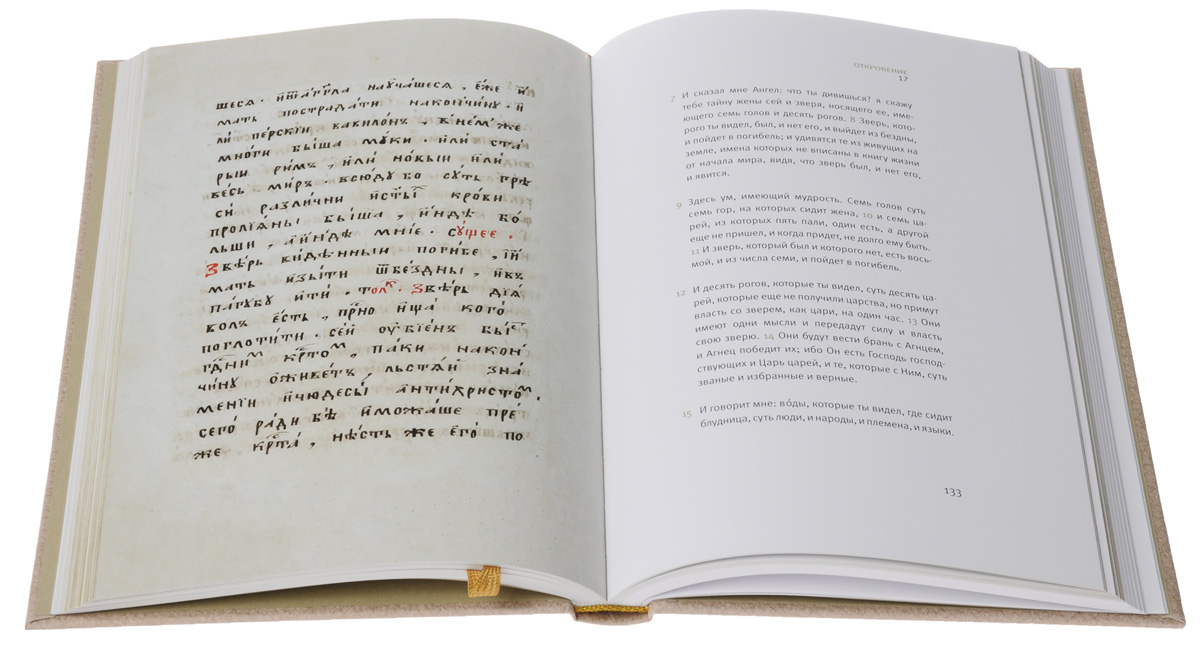 шесѧ . ѿаггла научашесѧ , еже и
мать пострадати накончину . и
ли перскїи вавилонъ , внемже
многи быша муки . или ста
рыи римъ , или новыи или
весь миръ . всюду бо суть грѣ
си различни и крови
пролїѧны быша , индѣ бо
льши , аиндѣ мнїе . сущее .
Звѣрь видѣнныи погибе , їи
мать изыти ѿбездны , ивъ
пагубу ити . толк . Звѣрь дїѧ
волъ есть , прно ища кого
поглотити . сеи оубїенъ
гднимъ кртомъ , паки након
чину оживетъ , льстѧи зна
менїи ичюдесы антихристом .
сего ради бѣ иможаше пре
же крта , нѣсть же его по
ОТКРОВЕНИЕ
17
7 И сказал мне Ангел: что ты дивишься? я скажу
тебе тайну жены сей и зверя, носящего ее, име-
ющего семь голов и десять рогов. 8 Зверь, кото-
рого ты видел, был, и нет его, и выйдет из бездны,
и пойдет в погибель; и удивятся те из живущих на
земле, имена которых не вписаны в книгу жизни
от начала мира, видя, что зверь был, и нет его,
и явится.
9 Здесь ум, имеющий мудрость. Семь голов суть
семь гор, на которых сидит жена, 10 и семь ца-
рей, из которых пять пали, один есть, а другой
еще не пришел, и когда придет, не долго ему быть.
11 И зверь, который был и которого нет, есть вось-
мой, и из числа семи, и пойдет в погибель.
12 И десять рогов, которые ты видел, суть десять ца-
рей, которые еще не получили царства, но примут
власть со зверем, как цари, на один час. 13 Они
имеют одни мысли и передадут силу и власть
свою зверю. 14 Они будут вести брань с Агнцем,
и Агнец победит их; ибо Он есть Господь господ-
ствующих и Царь царей, и те, которые с Ним, суть
званые и избранные и верные.
15 И говорит мне: во́ды, которые ты видел, где сидит
блудница, суть люди, и народы, и племена, и языки.
133